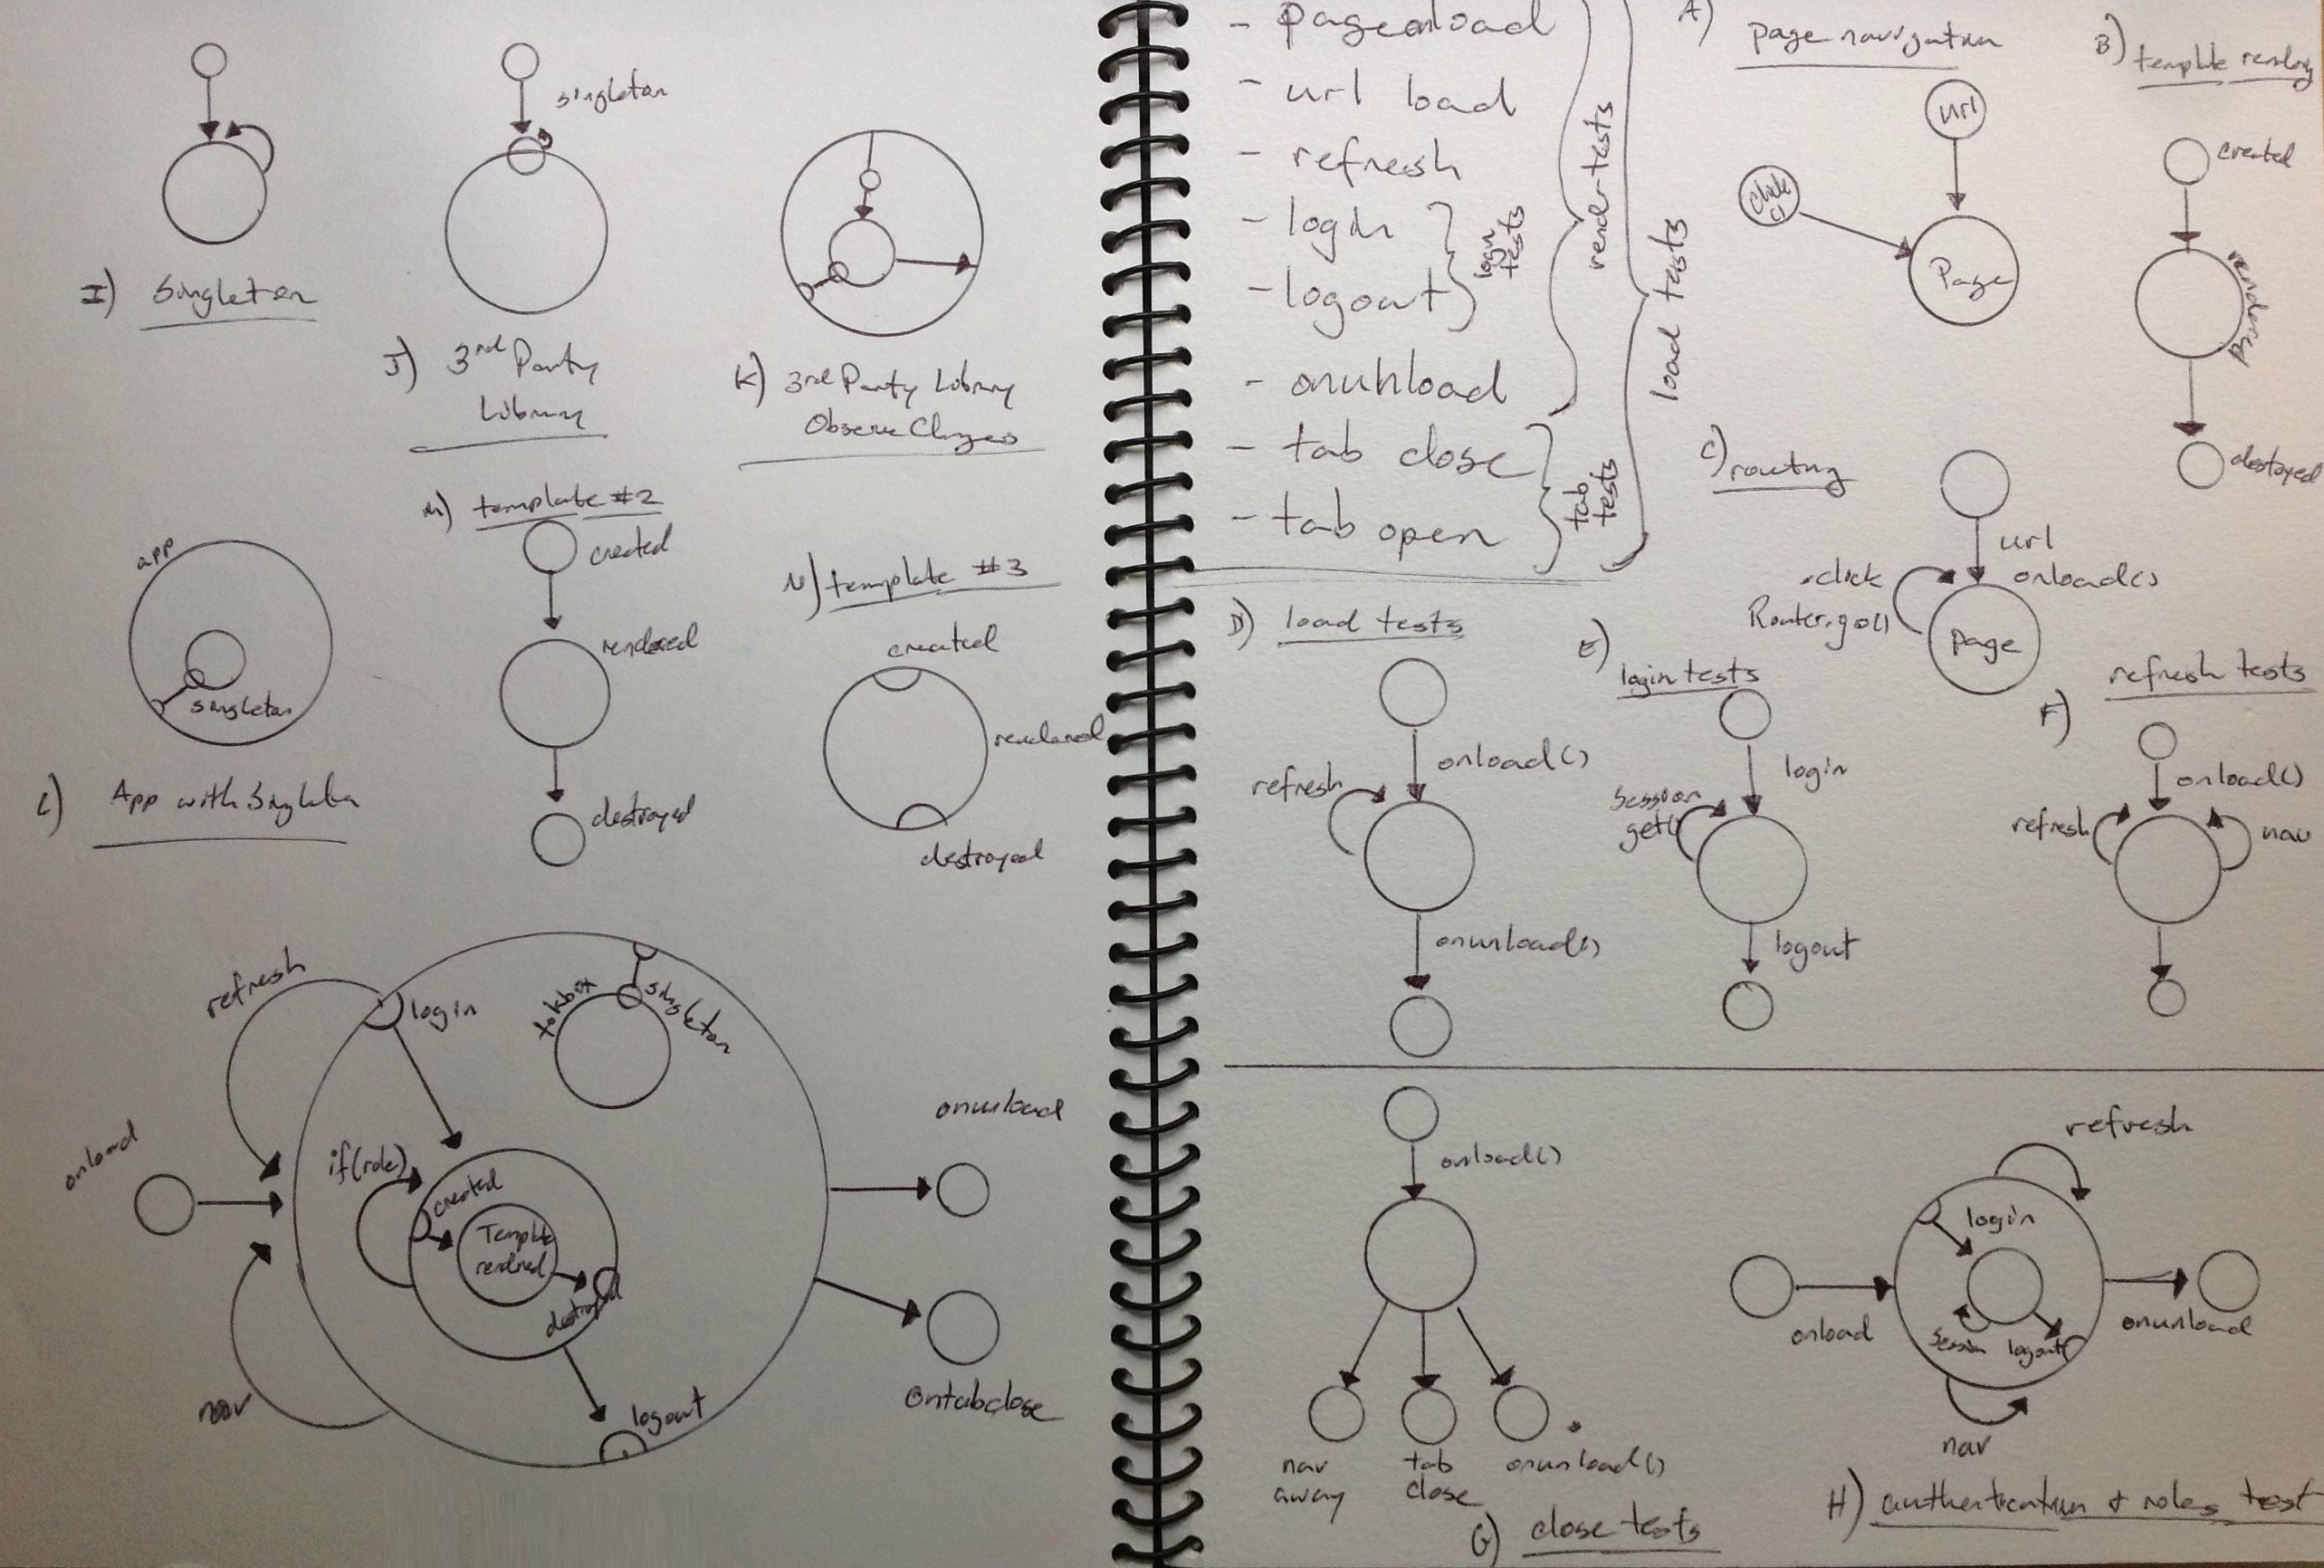 singleton
I) Singleton
J) 3rd Party
Library
K) 3rd Party Library
Observe Changes
app
singleton
L) App with Singleton
M) template #2
created
rendered
destroyed
N) template #3
created
rendered
destroyed
refresh
login
tokbox
singleton
onload
if(role)
created
Template
rendered
destroyed
nav
logout
onunload
ontabclose
- pageonload
- url load
- refresh
- login
- logout
login
tests
- onunload
render tests
- tab close
- tab open
tab
tests
load tests
A) page navigation
url
click
Page
B) template rendering
created
rendered
destroyed
C) routing
url
onload()
click
Router.go()
page
D) load tests
onload()
refresh
onunload()
E) login tests
login
Session
get()
logout
F) refresh tests
onload()
refresh
nav
onload()
nav
away
tab
close
onunload()
G) close tests
refresh
login
onload
session
logout
onunload
nav
H) authentication & roles test